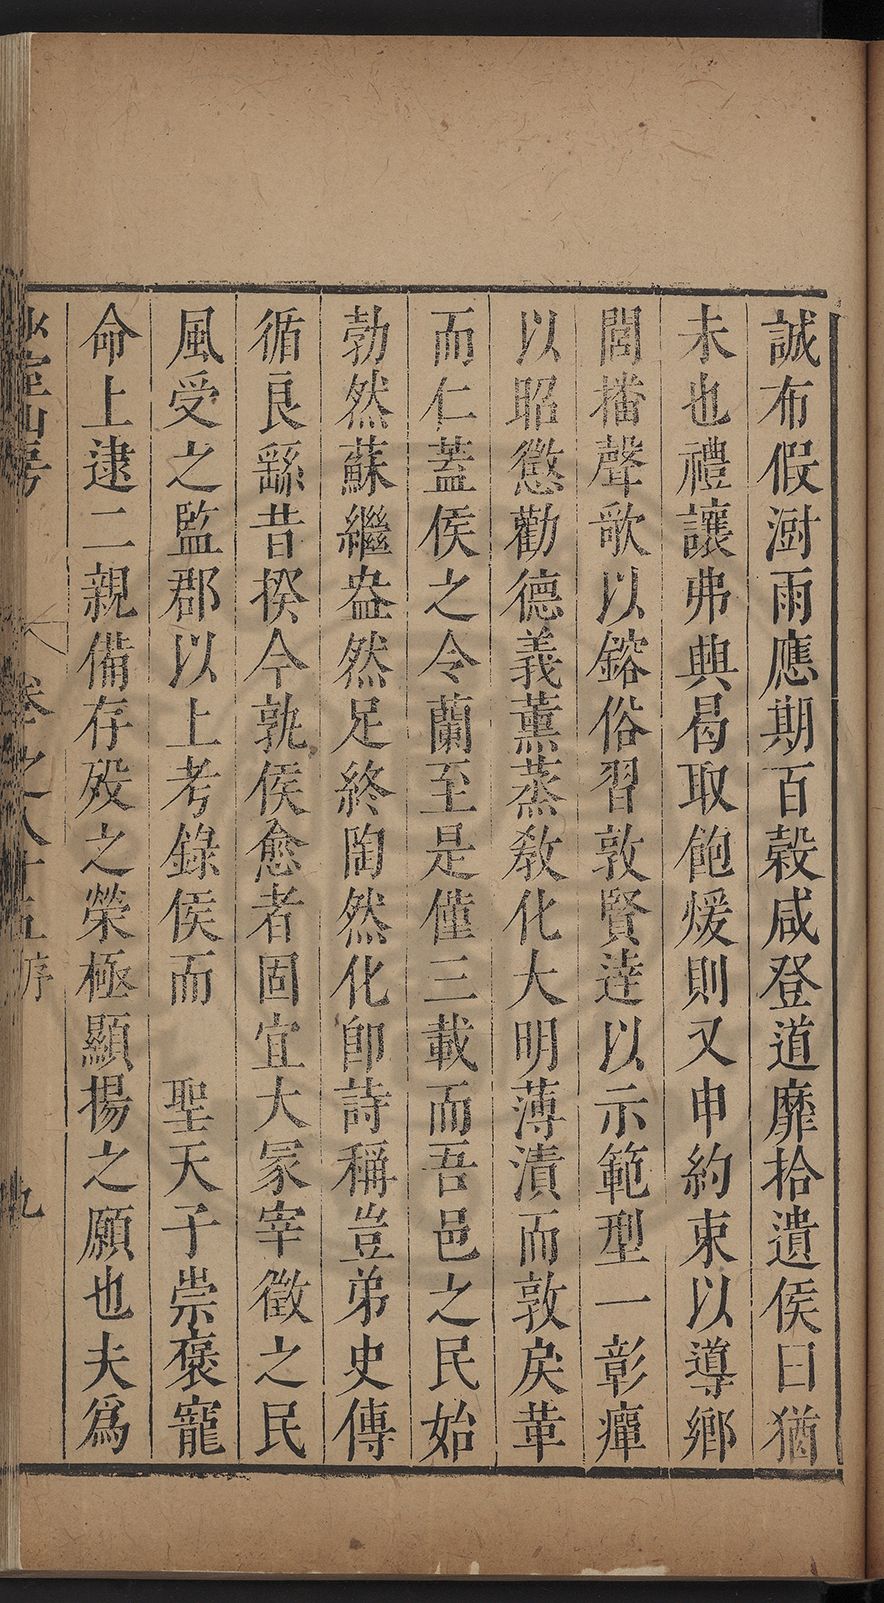 誠布假澍雨應期百穀咸登道靡拾遺侯曰猶
未也禮讓弗興曷取飽煖則又申約束以導鄉
閭播聲歌以鎔俗習敦賢逹以示範型一彰癉
以昭懲勸德義薰蒸教化大明薄漬而敦戾革
而仁蓋侯之令蘭至是僅三載而吾邑之民始
勃然蘇繼盎然足終陶然化卽詩稱豈弟史傳
循良繇昔揆今孰侯愈者固宜大冢宰徵之民
風受之監郡以上考錄侯而　聖天子崇褒寵
命上逮二親備存歿之榮極顯揚之願也夫爲
室山房 卷之八十五序 九